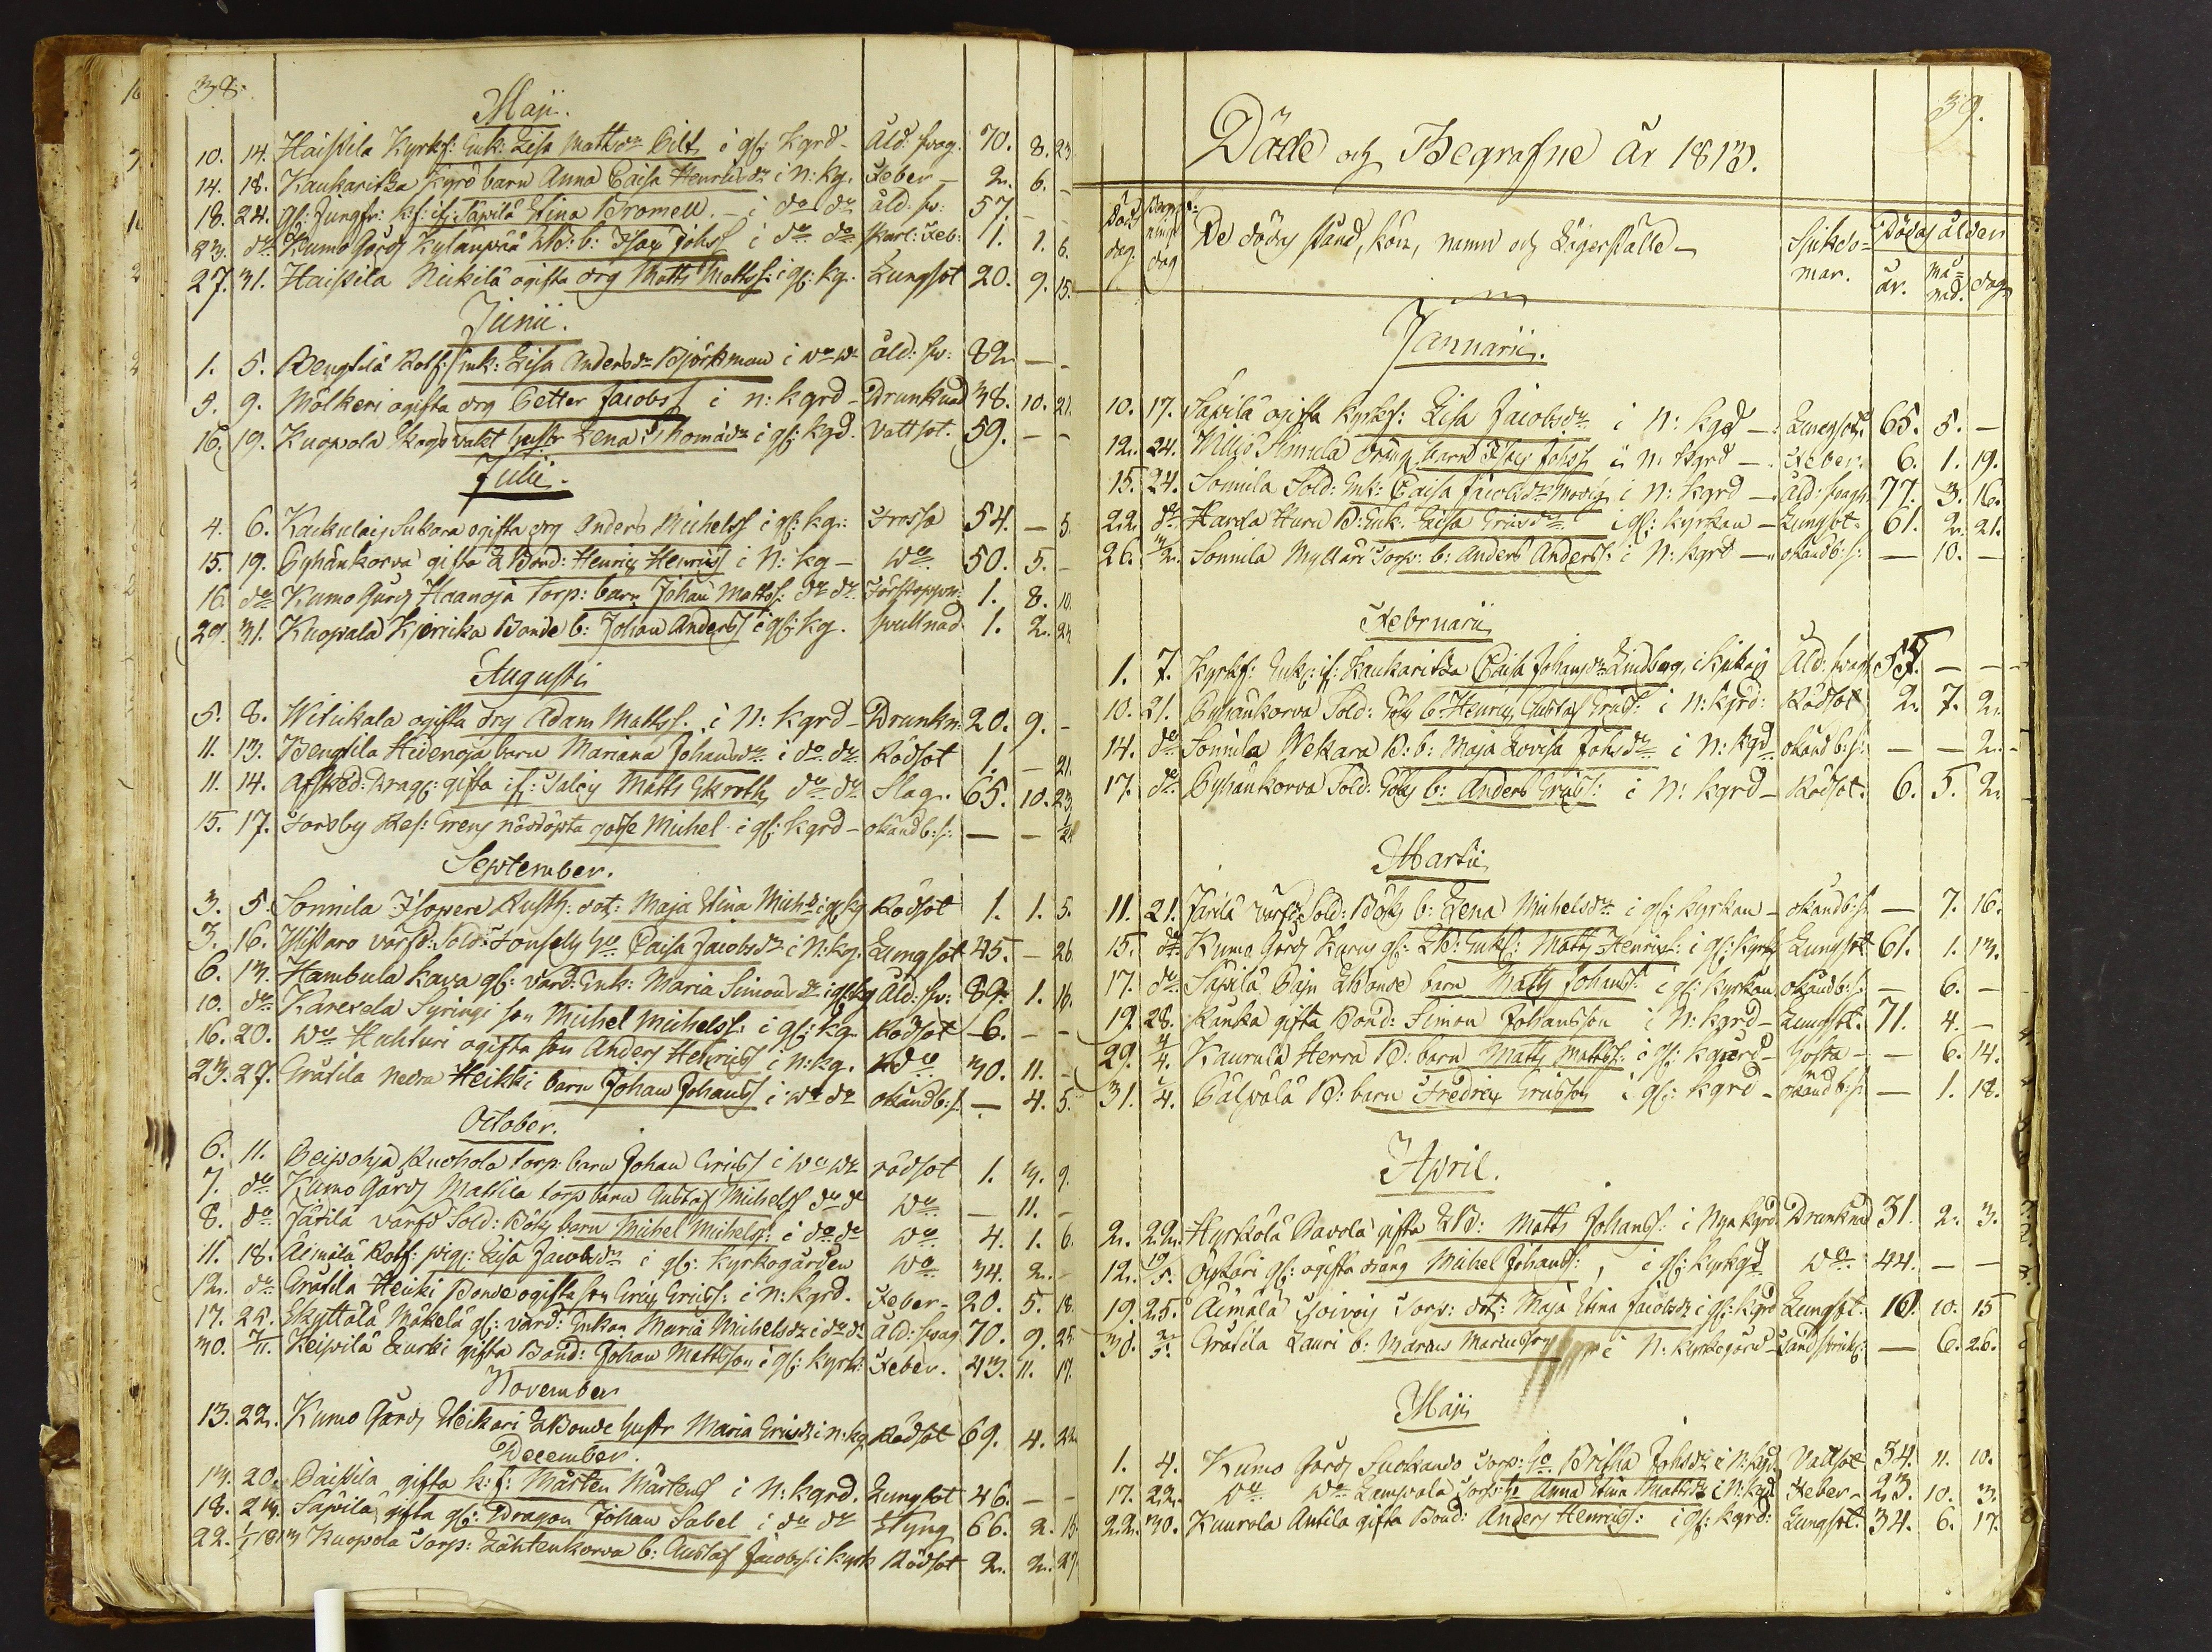 38.
Maji.
10. 14. Haistila Kyrkf: Enk: Lisa Mattsdr i gl: kgrd - Åld: svag. 70. 8. 23.
14. 18. Kaukaritsa barn Anna Caisa Henricsdr i N: kg. Feber - 2. 6. -
18. 24. gl: Jungfr: ifr: Säpilä Stina Bromell. - i do do åld: sv: 57. - -
23. do Kumo Gårds Kylänpää b: Isac Johss i do do skarl: Feb: 11. 1. 6.
27. 31. Haistila Nickilä ogifta drg Matts Mattss: i gl: kg. Lungsot 20. 9. 15.
Junii.
1. 5. Bengtilä Rotf: Enk: Lisa Andersdr Björkman i do do åld: sv: 82 - -
5. 9. Mölkeri ogifta drg Petter Jacobss i n: kgrd - Drunknad 38. 10. 21.
16. 19. Kuopola Skogsvakt hustr Lena Thomædr i gl: kgd. Vattsot. 59. - -
Julii.
4. 6. Kaukulais Sukara ogifta drg Anders Michelss i gl: kg: Frossa 54. - 5.
15. 19. Pyhänkorva gifta Bond: Henric Henrics i N: kg - do 50. 5. -
16. do Kumo Gårds Haanoja Torp: barn Johan Mattss: do do Förstoppn: 1. 8. 10.
29. 31. Kuopala Kjerrika Bonde b: Johan Anderss i gl: kg. svullnad 1. 2. 24.
Augusti
5. 8. Witikala ogifta drg Adam Mattss. i N: kgrd - Drunkn: 20. 9. -
11. 13. Bengtila Hidenoja barn Mariana Johansdr i do do Rödsot 1. - 21.
11. 14. Afsked: Drag: gifta if: Matts Ekroth do do Slag. 65. 10. 23.
15. 17. Forsby Ref: Grens nöddöpta gosse Michel i gl: kgrd - okänd b: s: - - 24
September.
3. 5. Sonnila Isopere Rusth: dot: Maja Stina Michsdr i gl: kg Rödsot 1. 1. 5.
3. 16. Ylistaro värfd: Sold: ho Caisa Jacobsdr i N: kg. Lungsot 45. - 26.
6. 13. Hambula Kava gl: värd: Enk: Maria Simonsdr i gl: kg Åld: sv: 89. 1. 16.
10. do Karevela Syringi son Michel Michelss: i gl: kg. Rödsot 6. - -
16. 20. do Huhturi ogifta son Anders Henricss i n: kg. do 30. 11. -
23. 27. Gråtila nedra Heikki barn Johan Johanss i do do okänd b: s: - 4. 5.
October.
6. 11. Peipohja Ruohola torp: barn Johan Ericss i do do rödsot 1. 3. 9.
7. do Kumo Gårds Mattila torp barn Gustaf Michelss do do do - 11. -
8. do Järilä värfd Sold: Böks barn Michel Michelss: i do do do 4. 1. 6.
11. 18. Äimälä Rotf: pig: Lisa Jacobsdr i gl: kyrkogården do 34. 2. -
12. do Gråtila Heiki Bonde ogifta son Eric Ericss: i n: kgrd. Feber - 20. 5. 18.
17. 25. Skyttälä Mäkelä gl: värd: Enkan Maria Michelsdr i do do Åld: svag 70. 9. 25.
30. 7/11. Keipilä Lurki gifta Bond: Johan Mattsson i gl: kyrk: Feber. 43. 11. 17.
November
13. 22. Kumo Gårds Heikari Bonde hustr Maria Ericsdr i n: kg Rödsot 69. 4. 22.
December.
13. 20. Paistila gifta k: f: Mårten Mårtenss i N: kgrd. Lungsot 46. - -
18. 23. Säpilä gifta gl: Dragon Johan Sabel i do do Styng 66. 2. 15.
22. 1/1 1813 Kuopola Torp: Lähtenkorva b: Gustaf Jacobss. i kyrk Rödsot 2. 2. 27.
39.
Döde och Begrafne år 1813.
Döds dag. Begrafnings dag De dödas stånd, kön, namn och Lägerställe - Sjukdomar. Dödas ålder
år. månad. dag
Januarii.
10. 17. Säpilä ogifta kyrkf: Lisa Jacobsdr i N: kgd - Lungsot. 65. 5. -
12. 24. Villiö Simula dräng barn Isac Johss i N: kgrd - Feber. 6. 1. 19.
15. 24. Sonnila Sold: Enk: Caisa Jacobsdr Modig i N: kgrd - Åld: svagh. 77. 3. 16.
22. do Harola Huru B: Enk: Caisa Ericsdr i gl: kyrkan - Lungsot. 61. 2. 21.
26. 2. Sonnila Myllari Torp: b: Anders Anderss: i N: kgrd - okänd b: s: - 10. -
Februarii
1. 7. Kyrkf: Enk: if: Kaukaritsa Caisa Johansdr Lindberg, i kyrkog Åld: svagh 57. - -
10. 21. Pyhänkorva Sold: Göks b: Henric Gustaf Ericss: i n: kgrd: Rödsot 2. 7. 2.
14. do Sonnila Wekara B: b: Maja Lovisa Johsdr i N: kgd. okänd b: s: - - 2.
17. do Pyhänkorva Sold: Göks b: Anders Ericss: i N: kgrd - Rödsot. 6. 5. 2.
Martii
11. 21. Järilä värfd: Sold: Böks b: Lena Michelsdr i gl: kyrkan - okänd b: s: - 7. 16.
15. do Kumo Gårds Kurus gl: Enkl: Matts Henricss: i gl: kyrk Lungsot 61. 1. 13.
17. do Säpilä Paju Bonde barn Matts Johanss: i gl: kyrkan okänd b: s: - 6. -
19. 28. Kanka gifta Bond: Simon Johansson i N: kgrd - Lungsot. 71. 4. -
29. 4/4. Kaurula Herra B: barn Matts Mattss: i gl: kgård - Hosta - - 6. 14.
31. 4/4. Pälpälä B: barn Fredric Ericsson i gl: kgrd - okänd b: s: - 1. 18.
April.
2. 22. Hyrkölä Pavola gifta B: Matts Johanss: i Nya kgrd Drunknad 31. 2. 3.
12. 19/5. Öykäri gl: ogifta dräng Michel Johanss:, i gl: kyrkgd do 44. - -
19. 25. Äimälä Torp: dot: Maja Stina Jacobsdr i gl: kgrd Lungsot. 10. 10. 15
30. 2/5. Gråtila Lauri b: Marcus Marcusson i N: kyrkogård - - 6. 26.
Maji
1. 4. Kumo Gårds Suokando Torp: ho Britha Johsdr i N: kgd. Vattsot 34. 11. 10.
17. 22. do do Lampvala Torp: ho Anna Stina Mattsdr i N: kgd Feber - 23. 10. 3.
22. 30. Kuurola Antila gifta Bond: Anders Henricss: i gl: kgrd: Lungsot. 34. 6. 17.